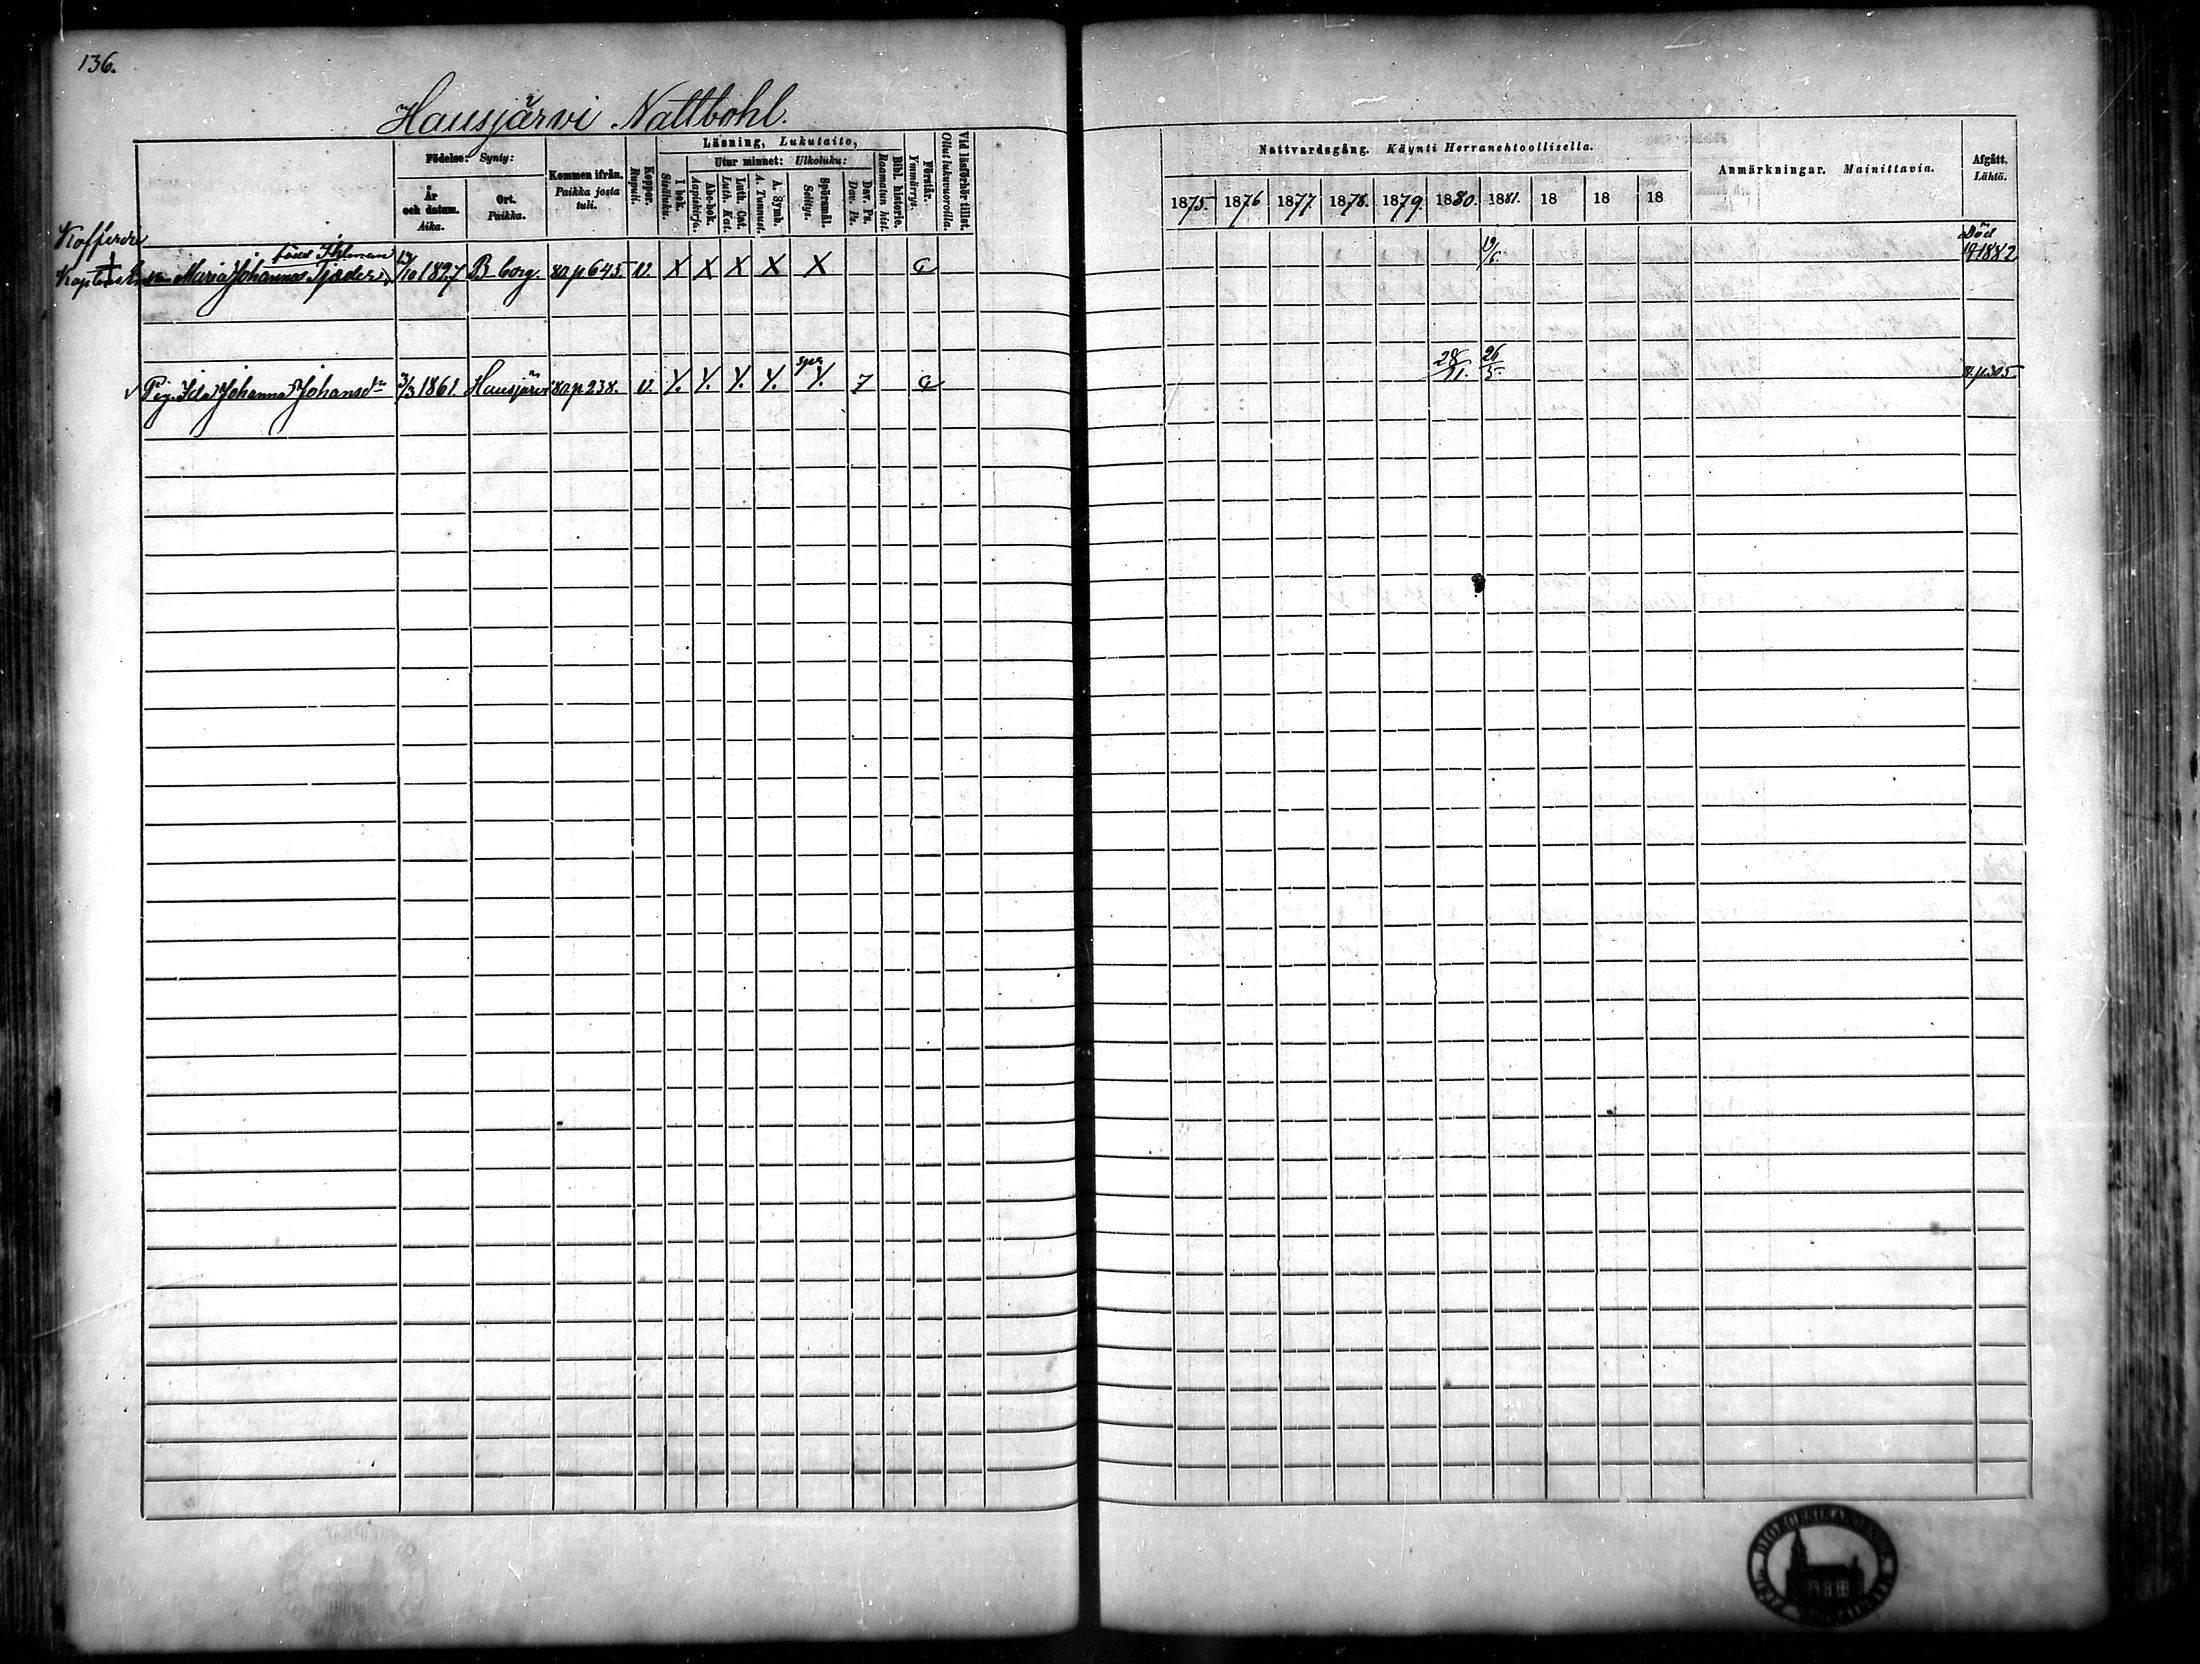 136.
Hausjärvi Nattbohl.
Födelse: Synty:
År och datum. Aika.
Ort. Paikka.
Kommen ifrån. Paikka josta tuli.
Koppor. Rupuli.
Läsning, Lukutaito,
I bok. Sisäluku.
Utur minnet: Ulkoluku:
Abc-bok. Aapiskirja.
Luth. Cat. Luth. Kat.
A. Symb. A. Tunnust.
Spörsmål. Selitys.
Dav. Ps. Dav. Ps.
Bibl. historie. Raamatun hist.
Förstår. Ymmärrys.
Vid läsförhör tillst. Ollut lukuvuoroilla.
Nattvardsgång. Käynti Herranehtoollisella.
1875. 1876 1877 1878. 1879. 1880. 1881. 18 18 18
Anmärkningar. Mainittavia.
Afgått. Lähtö.
Kofferdi
född Ihlman
Maria Johanna Tjæder 1827 B borg. p 645 v. X X X X X 19/6. Död 1882
Pig. Ida Johanna Johansdr 3/3 1861. Hausjärvi p 238. v. 7 28/11. 26/5. p. 305